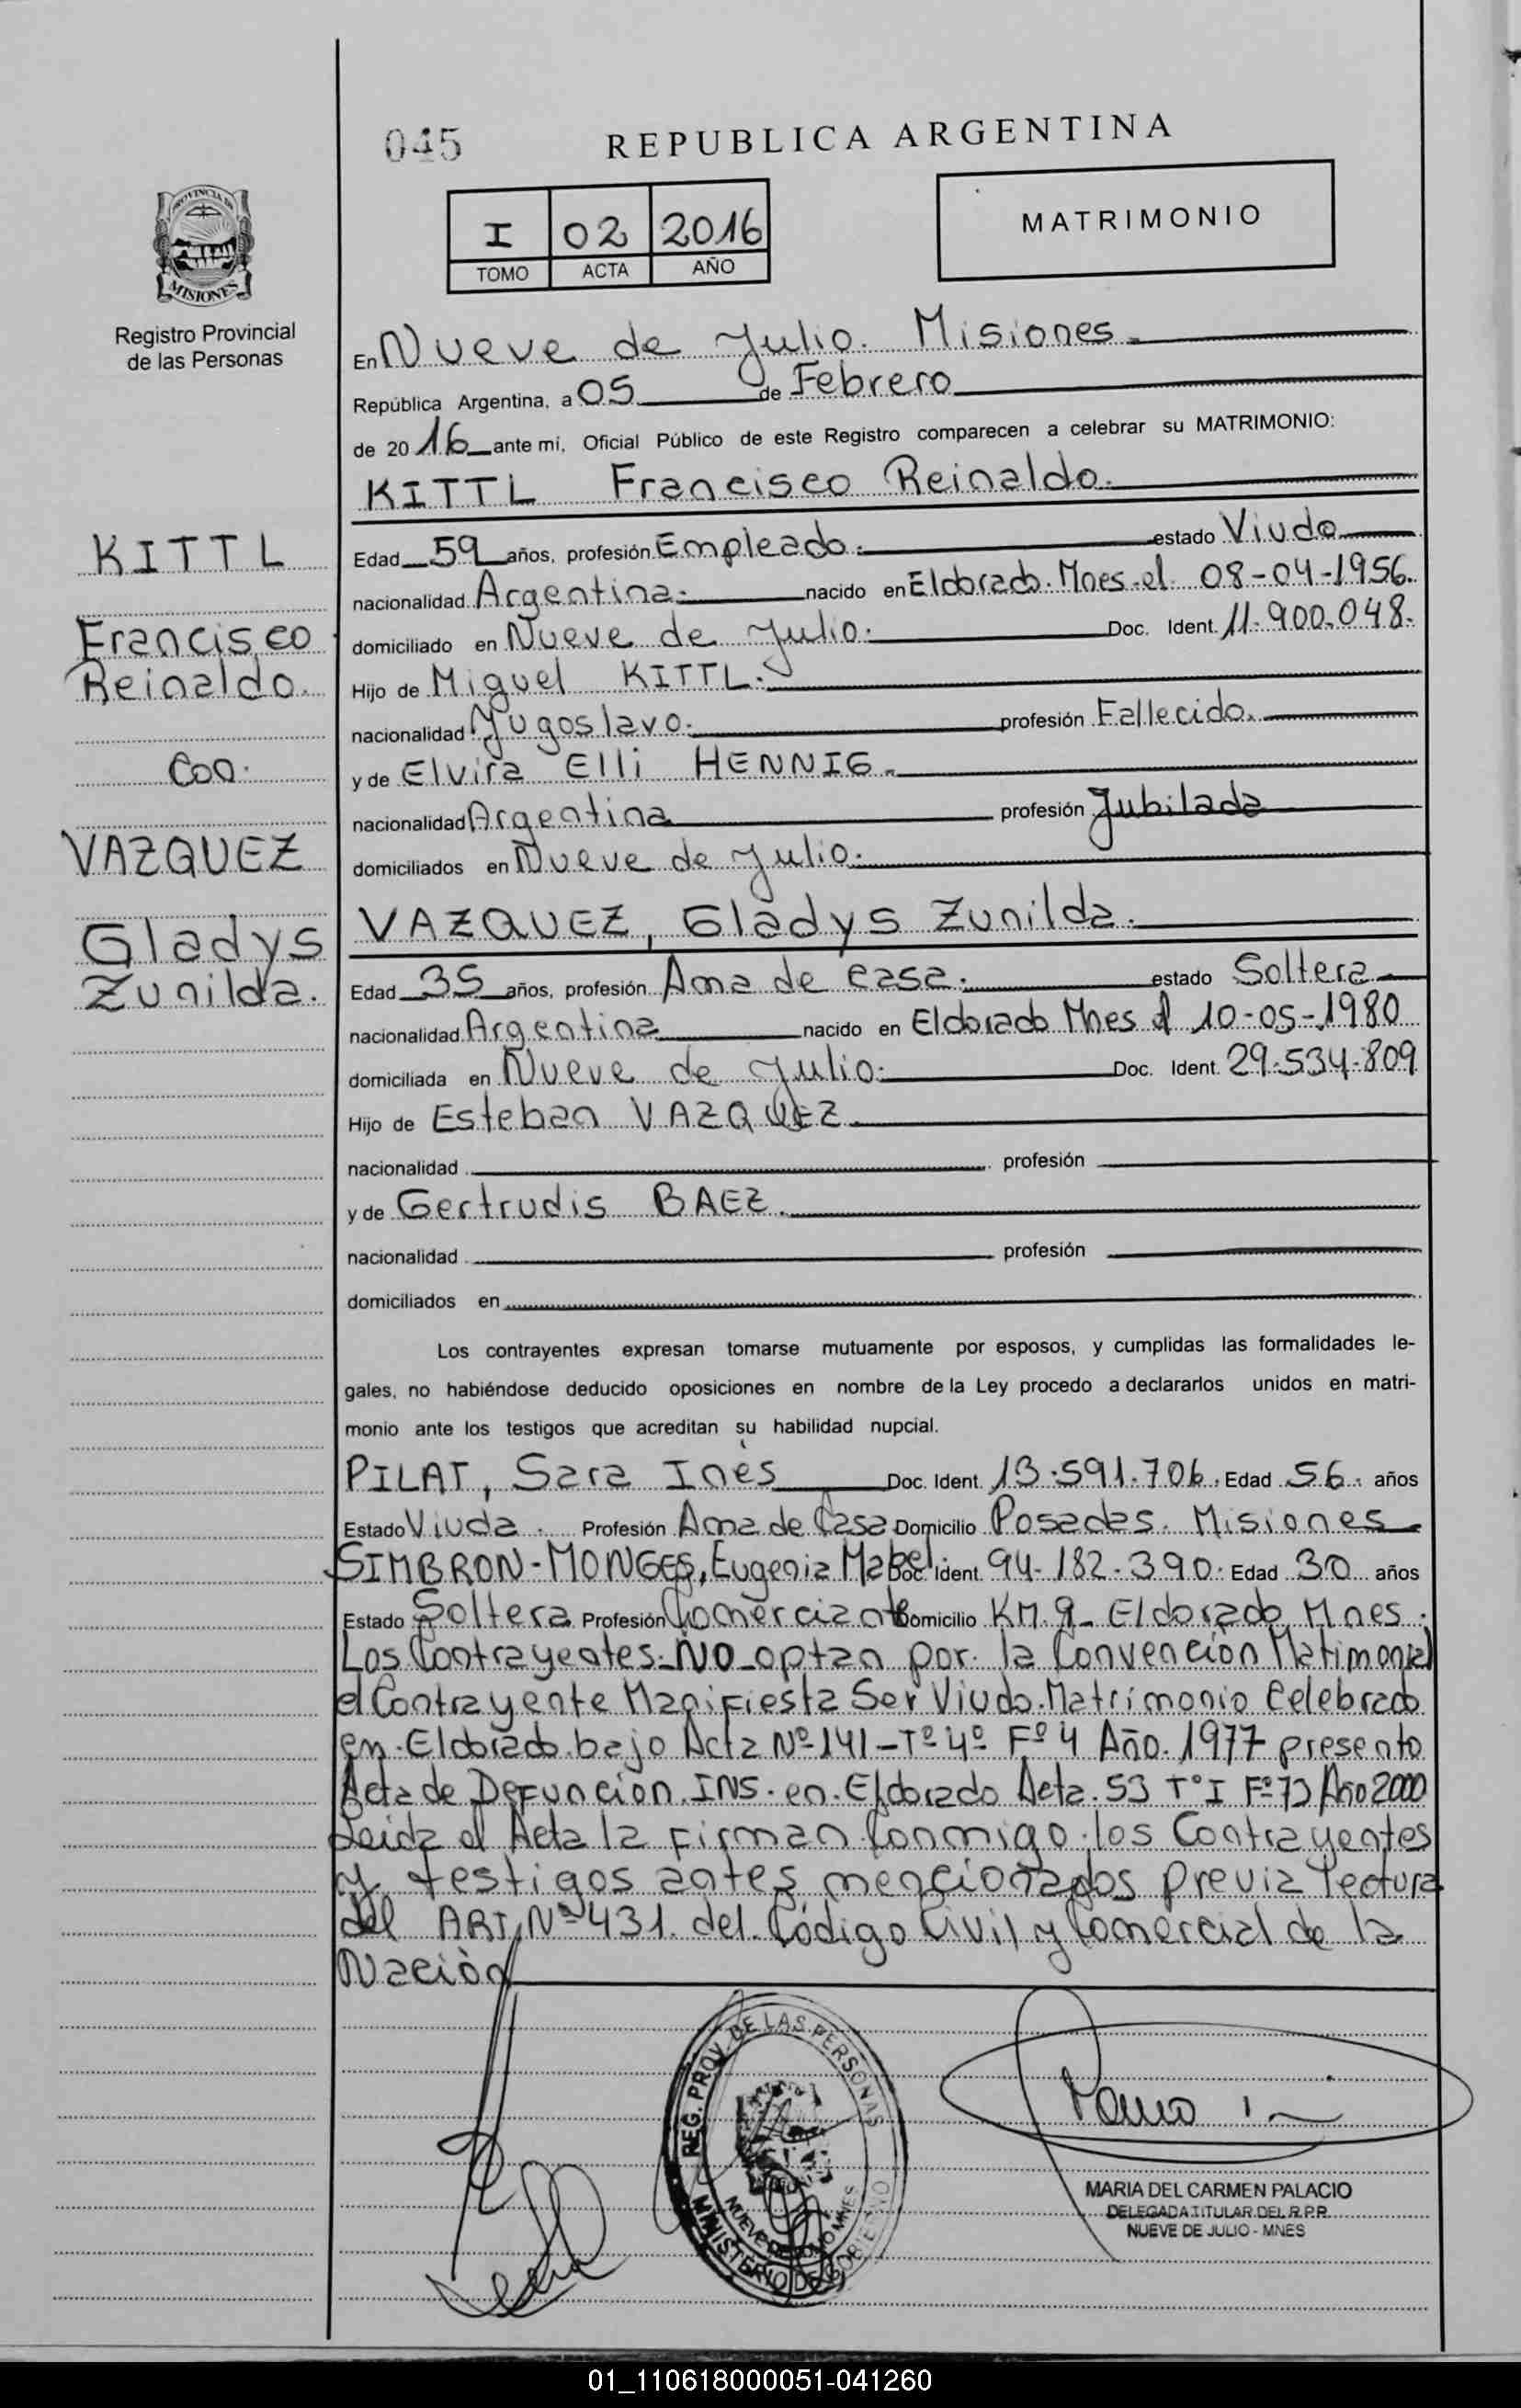 045
REPUBLICA ARGENTINA
PROVINCIA DE
MISIONES
Registro Provincial
de las Personas
I 02 2016
TOMO ACTA AÑO
MATRIMONIO
En Nueve de Julio. Misiones
República Argentina, a 05 de Febrero
de 2016 ante mí, Oficial Público de este Registro comparecen a celebrar su MATRIMONIO:
KITTL Francisco Reinaldo.
Edad 59 años, profesión Empleado. estado Viudo
nacionalidad Argentina. nacido en Eldorado. Mnes. el 08-04-1956.
domiciliado en Nueve de Julio. Doc. Ident. 11.900.048.
Hijo de Miguel KITTL.
nacionalidad Yugoslavo. profesión Fallecido.
y de Elvira Elli HENNIG.
nacionalidad Argentina profesión Jubilada
domiciliados en Nueve de Julio.
KITTL
Francisco
Reinaldo.
Con.
VAZQUEZ
Gladys
Zunilda.
VAZQUEZ, Gladys Zunilda.
Edad 35 años, profesión Ama de casa. estado Soltera
nacionalidad Argentina nacido en Eldorado Mnes el 10-05-1980
domiciliada en Nueve de Julio. Doc. Ident. 29.534.809
Hijo de Esteban VAZQUEZ
nacionalidad profesión
y de Gertrudis BAEZ.
nacionalidad profesión
domiciliados en
Los contrayentes expresan tomarse mutuamente por esposos, y cumplidas las formalidades le-
gales, no habiéndose deducido oposiciones en nombre de la Ley procedo a declararlos unidos en matri-
monio ante los testigos que acreditan su habilidad nupcial.
PILAT, Sara Inès Doc. Ident. 13.591.706. Edad 56. años
Estado Viuda. Profesión Ama de Casa Domicilio Posadas. Misiones
SIMBRON-MONGES, Eugenia Mabel. Doc. Ident. 94.182.390. Edad 30 años
Estado Soltera Profesión Comerciante Domicilio KM. 9_ Eldorado, Mnes.
Los Contrayentes. NO_optan por. la Convención Matimonial
el Contrayente Manifiesta Ser Viudo. Matrimonio Celebrado
en. Eldorado. bajo Acta Nº 141-Tº 4º Fº 4 Año. 1977 presento
Acta de Defunción. INS. en. Eldorado Acta. 53 Tº I Fº 73 Año 2000
Leida el Acta la firman Conmigo. los Contrayentes
y testigos antes mencionados previa lectura
del ART. Nº 431. del. Código Civil y Comercial de la
Naciòn
REG. PROV. DE LAS PERSONAS
NUEVE DE JULIO MNES
MINISTERIO DE GOBIERNO
MARIA DEL CARMEN PALACIO
DELEGADA TITULAR DEL R.P.P.
NUEVE DE JULIO - MNES
01_110618000051-041260